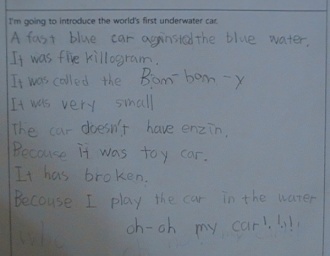 I'm going to introduce the world's first underwater car.
A fast blue car against the blue water.
It was five killogram.
It was called the Bam-bam-y
It was very small
The car doesn't have enzin.
Because it was toy car.
It has broken.
Because I play the car in the water
oh-oh my car!.!.!.!.